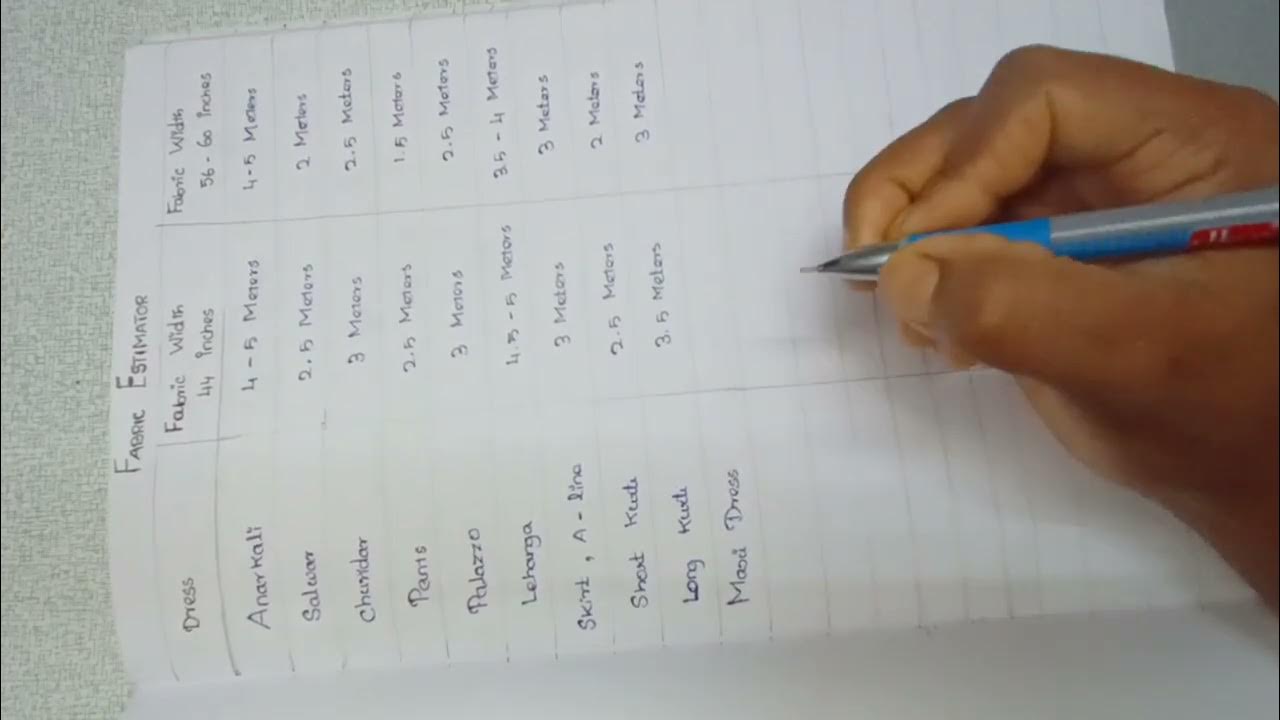 FABRIC ESTIMATOR
Dress Fabric Width 44 inches Fabric Width 56 - 60 inches
Anarkali 4 - 5 Meters 4 - 5 Meters
Salwar 2.5 Meters 2 Meters
Churidar 3 Meters 2.5 Meters
Pants 2.5 Meters 1.5 Meters
Palazzo 3 Meters 2.5 Meters
Lehanga 4.5 - 5 Meters 3.5 - 4 Meters
Skirt, A - line 3 Meters 3 Meters
Short Kurti 2.5 Meters 2 Meters
Long Kurti 3.5 Meters 3 Meters
Maxi Dress